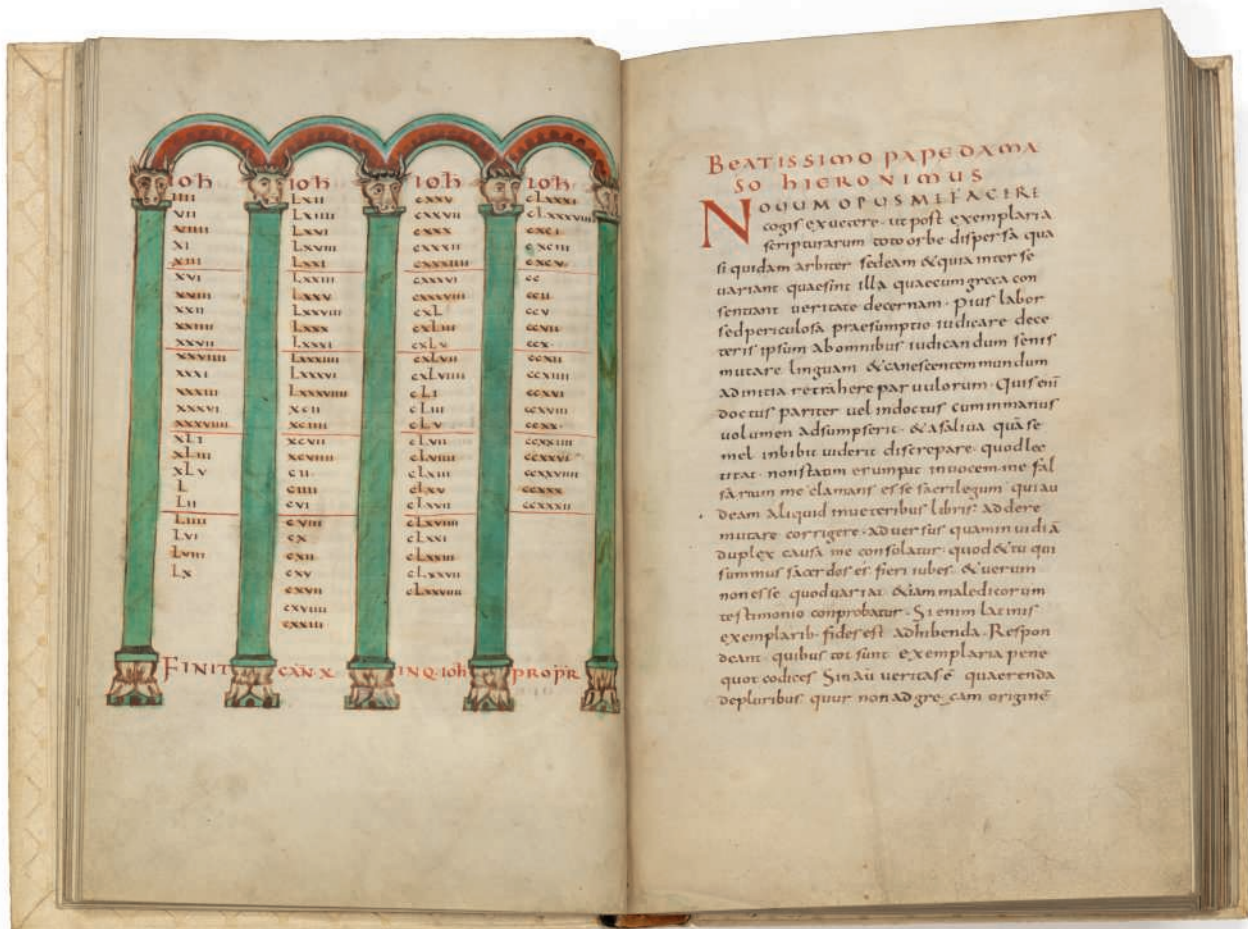 IOH
IIII
VII
VIIII
XI
XIII
XVI
XVIII
XXII
XXIIII
XXVII
XXVIIII
XXXI
XXXIII
XXXVI
XXXVIIII
XLI
XLIII
XLV
L
LII
LIIII
LVI
LVIII
LX
IOH
LXII
LXIIII
LXVI
LXVIII
LXXI
LXXIII
LXXV
LXXVIII
LXXX
LXXXI
LXXXIIII
LXXXVI
LXXXVIIII
XCII
XCIIII
XCVII
XCVIIII
CII
CIIII
CVI
CVIII
CX
CXII
CXV
CXVIIII
CXXIII
IOH
CXXV
CXXVII
CXXX
CXXXII
CXXXIIII
CXXXVI
CXXXVIII
CXL
CXLIII
CXLV
CXLVII
CXLVIIII
CLI
CLIII
CLV
CLVII
CLVIIII
CLXIII
CLXV
CLXVII
CLXVIIII
CLXXI
CLXXVII
CLXXVIIII
IOH
CLXXXI
CLXXXVIIII
CXCI
CXCIII
CXCV
CC
CCII
CCV
CCVII
CCX
CCXII
CCXIIII
CCXVI
CCXVIII
CCXX
CCXXIIII
CCXXVI
CCXXVIIII
CCXXX
CCXXXII
FINIT CAN·X· INQ·IOH PROPR
BEATISSIMO PAPE DAMA
SO HIERONIMUS
NOUUM OPUS ME FACERE
cogis ex uetere· ut post exemplaria
scripturarum toto orbe dispersa qua
si quidam arbiter sedeam & quia inter se
uariant quae sint illa quae cum greca con
sentiant ueritate decernam· Pius labor
sed periculosa praesumptio iudicare dece
teris ipsum ab omnibus iudicandum senis
mutare linguam & canescentem mundum
ad initia retrahere paruulorum· Quis eni̅
doctus pariter uel indoctus cum in manus
uolumen adsumpserit· & a saliua qua̅ se
mel inbibit uiderit discrepare· quod lec
titat· non statim erumpit in uocem· me fal
sarium me clamans esse sacrilegum qui au
deam aliquid in ueteribus libris addere
mutare corrigere· aduersus quam inuidia̅
duplex causa me consolatur· quod & tu qui
summus sacerdos es fieri iubes· & uerum
non esse quod uariat &iam maledicorum
testimonio conprobatur· Si enim latinis
exemplarib· fides est adhibenda· Respon
deant· quibus tot sunt exemplaria pene
quot codices Sin au ueritas e̅ quaerenda
de pluribus· quur non ad gre cam origine̅